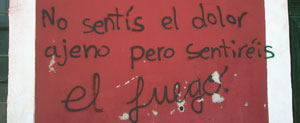 No sentís el dolor
ajeno pero sentiréis
el fuego!